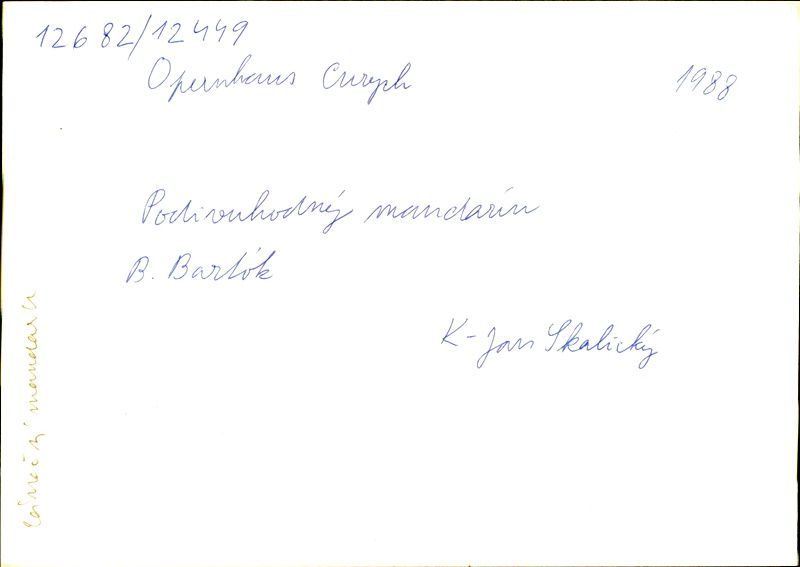 12682/12449
Opernhaus Curych 1988
Podivuhodný mandarín
B. Bartók
K-Jan Skalický
mandarín